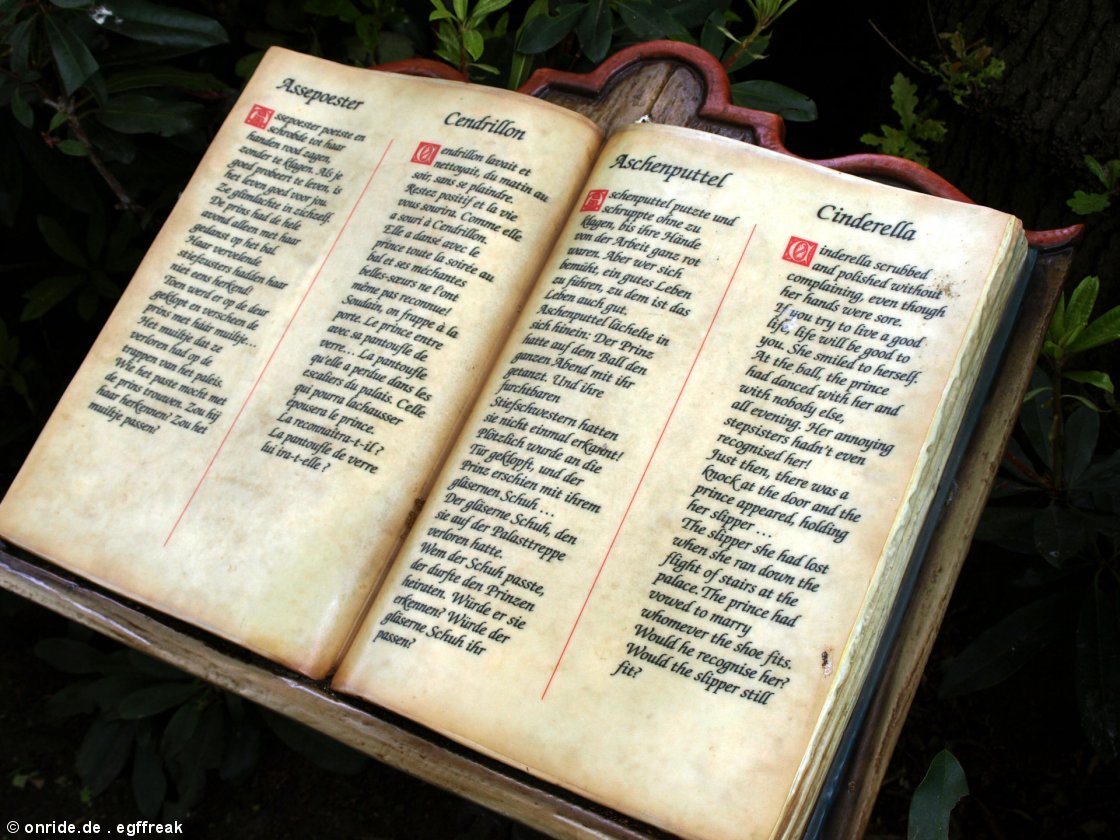 Assepoester
Assepoester poetste en
schrobde tot haar
handen rood zagen,
zonder te klagen. Als je
goed probeert te leven, is
het leven goed voor jou.
Ze glimlachte in zichzelf.
De prins had de hele
avond alleen met haar
gedanst op het bal.
Haar vervelende
stiefzusters hadden haar
niet eens herkend!
Toen werd er op de deur
geklopt en verscheen de
prins met háár muiltje...
Het muiltje dat ze
verloren had op de
trappen van het paleis.
Wie het paste mocht met
de prins trouwen. Zou hij
haar herkennen? Zou het
muiltje passen?
Cendrillon
Cendrillon lavait et
nettoyait, du matin au
soir, sans se plaindre.
Restez positif et la vie
vous sourira. Comme elle
a souri à Cendrillon.
Elle a dansé avec le
prince toute la soirée au
bal et ses méchantes
belles-sœurs ne l'ont
même pas reconnue!
Soudain, on frappe à la
porte. Le prince entre
avec sa pantoufle de
verre... La pantoufle,
qu'elle a perdue dans les
escaliers du palais. Celle
qui pourra la chausser
épousera le prince.
La reconnaîtra-t-il ?
La pantoufle de verre
lui ira-t-elle ?
Aschenputtel
Aschenputtel putzte und
schruppte ohne zu
klagen, bis ihre Hände
von der Arbeit ganz rot
waren. Aber wer sich
bemüht, ein gutes Leben
zu führen, zu dem ist das
Leben auch gut.
Aschenputtel lächelte in
sich hinein: Der Prinz
hatte auf dem Ball den
ganzen Abend mit ihr
getanzt. Und ihre
furchtbaren
Stiefschwestern hatten
sie nicht einmal erkannt!
Plötzlich wurde an die
Tür geklopft, und der
Prinz erschien mit ihrem
gläsernen Schuh ...
Der gläserne Schuh, den
sie auf der Palasttreppe
verloren hatte.
Wem der Schuh passte,
der durfte den Prinzen
heiraten. Würde er sie
erkennen? Würde der
gläserne Schuh ihr
passen?
Cinderella
Cinderella scrubbed
and polished without
complaining, even though
her hands were sore.
If you try to live a good
life, life will be good to
you. She smiled to herself.
At the ball, the prince
had danced with her and
with nobody else,
all evening. Her annoying
stepsisters hadn't even
recognised her!
Just then, there was a
knock at the door and the
prince appeared, holding
her slipper ...
The slipper she had lost
when she ran down the
flight of stairs at the
palace. The prince had
vowed to marry
whomever the shoe fits.
Would he recognise her?
Would the slipper still
fit?
© onride.de . egffreak